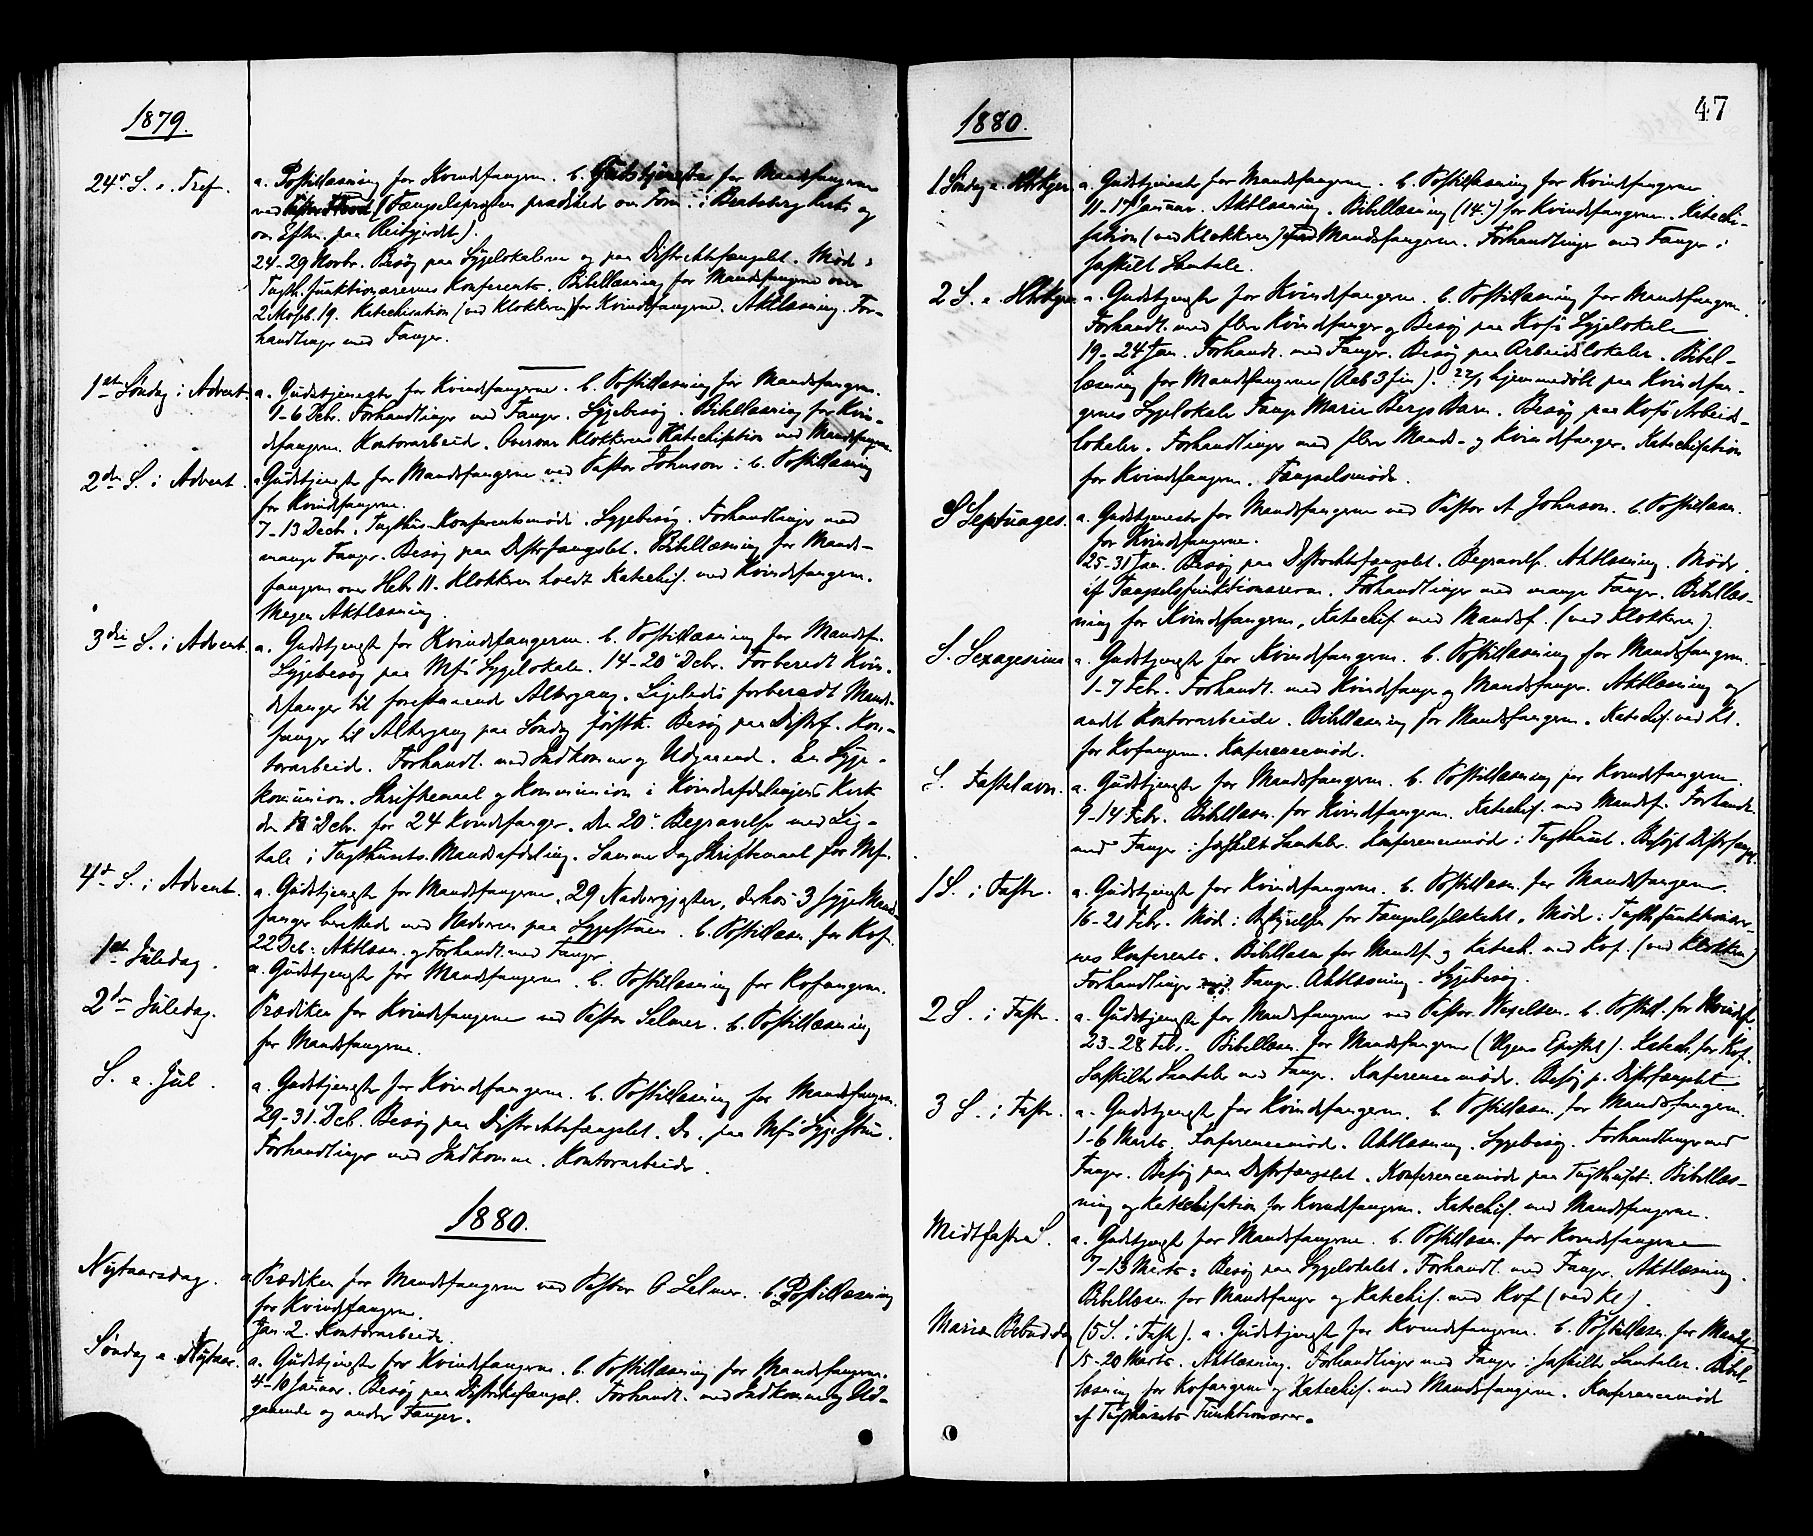 1879.
24de S. e. Tref. a. Postillæsning for Kvindefangerne. b. Gudstjeneste for Mandsfangerne
ved (Fængselspresten prædikede om Form. i Bratsberg Kirke og
om Efterm. paa Reitgjerdet).
24-29 Novbr. Besøg paa Sygelokalerne og paa Distriktsfængslet. Møde i
Tugth. Funktionærernes Konferents. Bibellæsning for Mandsfangerne over
2 Moseb. 19. Katechisation (ved Klokkeren) for Kvindefangerne. Aktlæsning. For-
handlinger med Fanger.
1ste Søndag i Advent. a. Gudstjeneste for Kvindefangerne. b. Postillæsning for Mandsfangerne.
1-6 Debr. Forhandlinger med Fanger. Sygebesøg. Bibellæsning for Kvin-
defangerne. Kontorarbeide. Overvar Klokkerens Katechisation med Mandsfangerne.
2den S. i Advent. a. Gudstjeneste for Mandsfangerne ved Pastor Johnson. b. Postillæsning
for Kvindefangerne.
7-13 Decbr. Tugthus-Konferentsmøde. Sygebesøg. Forhandlinger med
mange Fanger. Besøg paa Distrfængslet. Bibellæsning for Mands-
fangerne over Hebr 11. Klokkeren holdt Katechis. med Kvindefangerne.
Megen Aktlæsning.
3die S. i Advent. a. Gudstjeneste for Kvindefangerne. b. Postillæsning for Mandsf.
Sygebesøg paa Mfs Sygelokale. 14-20 Debr. Forberedt Kvin-
defanger til forestaaende Altergang. Ligeledes forberedt Mands-
fanger til Altergang paa Søndag førstk. Besøg paa Distrf. Kon-
torarbeide. Forhandl. med Indkomne og Udgaaende. En Syge-
kommunion. Skriftemaal og Kommunion i Kvindeafdelingens Kirke
den 18 Debr. for 24 Kvindefanger. Den 20de Begravelse med Lig-
tale i Tugthusets Mandsafdeling. Samme Dag Skriftemaal for Mf.
4de S. i Advent. a. Gudstjeneste for Mandsfangerne, 29 Nadvergjester, derhos 3 syge Mands-
fanger berettede med Nadveren paa Sygestuen. b. Postillæsn. for Kvf.
22 Deb. Aktlæsn. og Forhandl. med Fanger.
1ste Juledag. a. Gudstjeneste for Mandsfangerne. b. Postillæsning for Kvfangerne.
2den Juledag. Prædiken for Kvindefangerne ved Pastor Selmer. b. Postillæsning
for Mandsfangerne.
S. e. Jul. a. Gudstjeneste for Kvindefangerne. b. Postillæsning for Mandsfangerne.
29-31. Deb. Besøg paa Distriktsfængslet. Do. paa Mfs Sygestue.
Forhandlinger med Indkomne. Kontorarbeide.
1880.
Nytaarsdag. a. Prædiken for Mandsfangerne ved Pastor O Selmer. b. Postillæsning
for Kvindefangerne.
Jan. 2. Kontorarbeide.
Søndag e. Nytaar. a. Gudstjeneste for Kvindefangerne. b. Postillæsning for Mandsfangerne.
4-10 Januar. Besøg paa Distriktsfængsl. Forhandl. med Indkomne og Ud-
gaaende og andre Fanger.
47
1880.
1 Søndag e. Hlrtkgr. a. Gudstjeneste for Mandsfangerne. b. Postillæsning for Kvindefangerne
11-17 Januar. Aktlæsning. Bibellæsning (14de) for Kvindefangerne. Katechi-
sation (ved Klokkeren) med Mandsfangerne. Forhandlinger med Fanger i
særskilt Samtale.
2 S. e. Hlrtkgr. a. Gudstjeneste for Kvindefangerne. b. Postillæsning for Mandsfangerne.
Forhandl. med flere Kvindefanger og Besøg paa Kvfs Sygelokale
19-24 Jan. Forhandl. med Fanger. Besøg paa Arbeidslokaler. Bibel-
læsning for Mandsfangerne (Aab 3 fin). 22/1 hjemmedøbt paa Kvindefan-
gernes Sygelokale Fange Marie Bergs Barn. Besøg paa Kvfs Arbeids-
lokaler. Forhandlinger med flere Mands- og Kvindefanger. Katechisation
for Kvindefangerne. Fængselsmøde.
S Septuages. a. Gudstjeneste for Mandsfangerne ved Pastor A Johnson. b. Postillæsn.
for Kvindefangerne.
25-31 Jan. Besøg paa Distriktsfængslet. Begravelse. Aktlæsning. Møde
af Fængselsfunktionærerne. Forhandlinger med mange Fanger. Bibellæs-
ning for Kvindefangerne, Katechis med Mandsf. (ved Klokkeren).
S. Sexagesima a. Gudstjeneste for Kvindefangerne. b. Postillæsning for Mandsfangerne.
1-7 Febr. Forhandl. med Kvindefanger og Mandsfanger. Aktlæsning og
andet Kontorarbeide. Bibellæsning for Mandsfangerne. Katechis. ved Kl.
for Kvfangerne. Konferencemøde.
S. Fastelavn. a. Gudstjeneste for Mandsfangerne. b. Postillæsning for Kvindefangerne
9-14 Febr. Bibellæsn. for Kvindefangerne. Katechis. med Mandsf. Forhandl.
med Fanger i særskilt Samtaler. Konferencemøde i Tugthuset. Besøgt Distrfængs.
1 S. i Faste. a. Gudstjeneste for Kvindefangerne. b. Postillæsn. for Mandsfangerne.
16-21 Febr. Møde i Bestyrelsen for Fængselsselskabet. Møde i Tugthfunktionær-
nes Konferents. Bibellæsn for Mandsf. og Katech. med Kvf. (ved Klokkeren)
Forhandlinger med Fanger. Aktlæsning. Sygebesøg.
2 S. i Faste. a. Gudstjeneste for Mandsfangerne ved Pastor Wexelsen. b. Postill. for Kvindef.
23-28 Febr. Bibellæsn. for Mandsfangerne (Ugens Epistel). Katech. for Kvf.
Særskilte Samtaler med Fanger. Konferencemøde. Besøg p. Distrfængslet
3 S. i Faste. a. Gudstjeneste for Kvindefangerne. b. Postillæsn. for Mandsfangerne.
1-6 Marts. Konferencemøde. Aktlæsning. Sygebesøg. Forhandlinger med
Fanger. Besøg paa Distrfængslet. Konferencemøde paa Tugthuset. Bibellæs-
ning og Katechisation for Kvindefangerne. Katechis. med Mandsfangerne.
Midtfaste S. a. Gudstjeneste for Mandsfangerne. b. Postillæsn. for Kvindefangerne
7-13 Marts: Besøg paa Sygelokalet. Forhandl. med Fanger. Aktlæsning.
Bibellæsn. for Mandsfanger og Katechis. med Kvf (ved Kl).
Mariæ Bebud.dag (5 S. i Faste). a. Gudstjeneste for Kvindefangerne. b. Postillæsn. for Mandsf.
15-20 Marts. Aktlæsning. Forhandlinger med Fanger i særskilte Samtaler. Bibel-
læsning for Kvfangerne og Katechis. med Mandsfangerne. Konferencemøde
af Tugthusets Funktionærer.